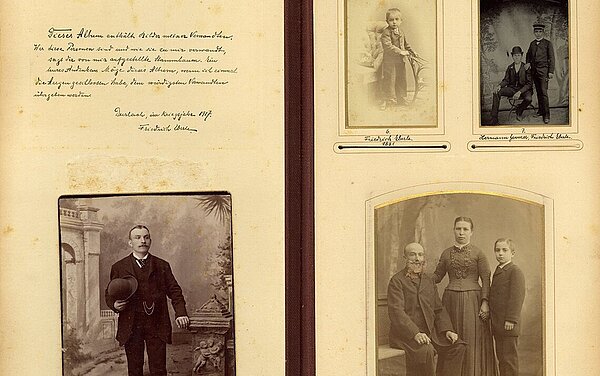 Dieses Album enthält Bilder meiner Verwandten.
Wer diese Personen sind und wie sie zu mir verwandt,
sagt die von mir aufgestellte Stammtafel. Ein
Andenken. Möge dieses Album, wenn ich einmal
die Augen geschlossen habe, dem würdigsten Verwandten
übergeben werden.
Durlach, im Kriegsjahr 1917.
Friedrich Eberle
6.
Friedrich Eberle
1891
7.
Hermann Friedrich Eberle.